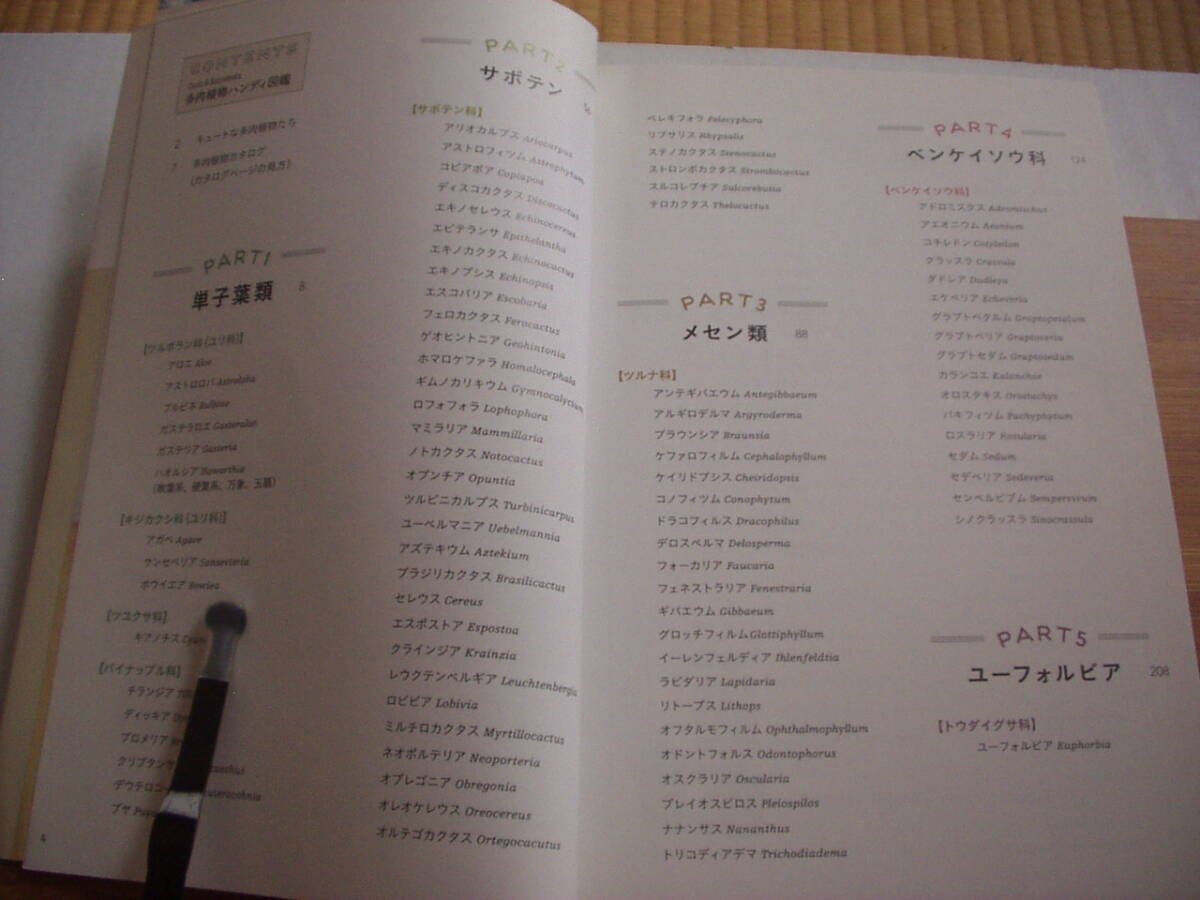 CONTENTS
多肉植物ハンディ図鑑
2 キュートな多肉植物たち
7 多肉植物カタログ
(カタログページの見方)
PART1
単子葉類 8
【ツルボラン科(ユリ科)】
アロエ Aloe
アストロロバ Astroloba
ブルビネ Bulbine
ガステラロエ Gasteraloe
ガステリア Gasteria
ハオルシア Haworthia
(軟葉系、硬葉系、万象、玉扇)
【キジカクシ科(ユリ科)】
アガベ Agave
サンセベリア Sansevieria
ボウイエア Bowiea
【ツユクサ科】
キアノチス
【パイナップル科】
チランジア
ディッキア
ブロメリア
クリプタン
デウテロコ
プヤ Puya
4
PART2
サボテン
【サボテン科】
アリオカルプス Ariocarpus
アストロフィツム Astrophytum
コピアポア Copiapoa
ディスコカクタス Discocactus
エキノセレウス Echinocereus
エピテランサ Epithelantha
エキノカクタス Echinocactus
エキノプシス Echinopsis
エスコバリア Escobaria
フェロカクタス Ferocactus
ゲオヒントニア Geohintonia
ホマロケファラ Homalocephala
ギムノカリキウム Gymnocalycium
ロフォフォラ Lophophora
マミラリア Mammillaria
ノトカクタス Notocactus
オプンチア Opuntia
ツルビニカルプス Turbinicarpus
ユーベルマニア Uebelmannia
アズテキウム Aztekium
ブラジリカクタス Brasilicactus
セレウス Cereus
エスポストア Espostoa
クラインジア Krainzia
レウクテンベルギア Leuchtenbergia
ロビビア Lobivia
ミルチロカクタス Myrtillocactus
ネオポルテリア Neoporteria
オブレゴニア Obregonia
オレオケレウス Oreocereus
オルテゴカクタス Ortegocacutus
ペレキフォラ Pelecyphora
リプサリス Rhypsalis
ステノカクタス Stenocactus
ストロンボカクタス Strombocactus
スルコレブチア Sulcorebutia
テロカクタス Thelocactus
PART3
メセン類 88
【ツルナ科】
アンテギバエウム Antegibbaeum
アルギロデルマ Argyroderma
ブラウンシア Braunsia
ケファロフィルム Cephalophyllum
ケイリドプシス Cheiridopsis
コノフィツム Conophytum
ドラコフィルス Dracophilus
デロスペルマ Delosperma
フォーカリア Faucaria
フェネストラリア Fenestraria
ギバエウム Gibbaeum
グロッチフィルム Glottiphyllum
イーレンフェルディア Ihlenfeldtia
ラピダリア Lapidaria
リトープス Lithops
オフタルモフィルム Ophthalmophyllum
オドントフォルス Odontophorus
オスクラリア Oscularia
プレイオスピロス Pleiospilos
ナナンサス Nananthus
トリコディアデマ Trichodiadema
PART4
ベンケイソウ科 124
【ベンケイソウ科】
アドロミスクス Adromischus
アエオニウム Aeonium
コチレドン Cotyledon
クラッスラ Crassula
ダドレア Dudleya
エケベリア Echeveria
グラプトペタルム Graptopetalum
グラプトベリア Graptoveria
グラプトセダム Graptosedum
カランコエ Kalanchoe
オロスタキス Orostachys
パキフィツム Pachyphytum
ロスラリア Rosularia
セダム Sedum
セデベリア Sedeveria
センペルビブム Sempervivum
シノクラッスラ Sinocrassula
PART5
ユーフォルビア 208
【トウダイグサ科】
ユーフォルビア Euphorbia